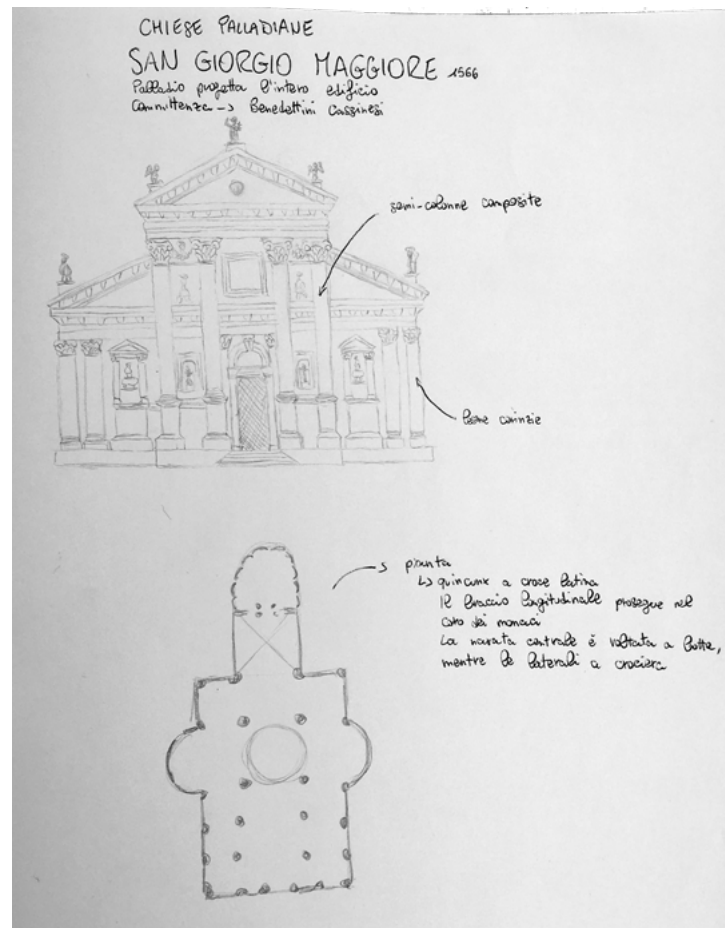 CHIESE PALLADIANE
SAN GIORGIO MAGGIORE 1566
Palladio progetta l'intero edificio
Committenza -> Benedettini Cassinesi
semi-colonne composite
corinzie
-> pianta
↳ quincunx a croce latina
Il braccio longitudinale prosegue nel
coro dei monaci
La navata centrale è voltata a botte,
mentre le laterali a crociera